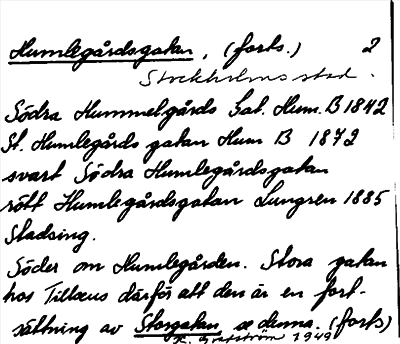 Humlegårdsgatan, (forts.) 2
Stockholms stad.
Södra Hummelgårds Gat. Hum. B 1842
St. Humlegårds gatan Hum B 1872
svart Södra Humlegårdsgatan
rött Humlegårdsgatan Lungren 1885
Stadsing.
Söder om Humlegården. Stora gatan
hos Tillæus därför att den är en fort-
sättning av Storgatan, se denna. (forts)
K. Grafström 1949